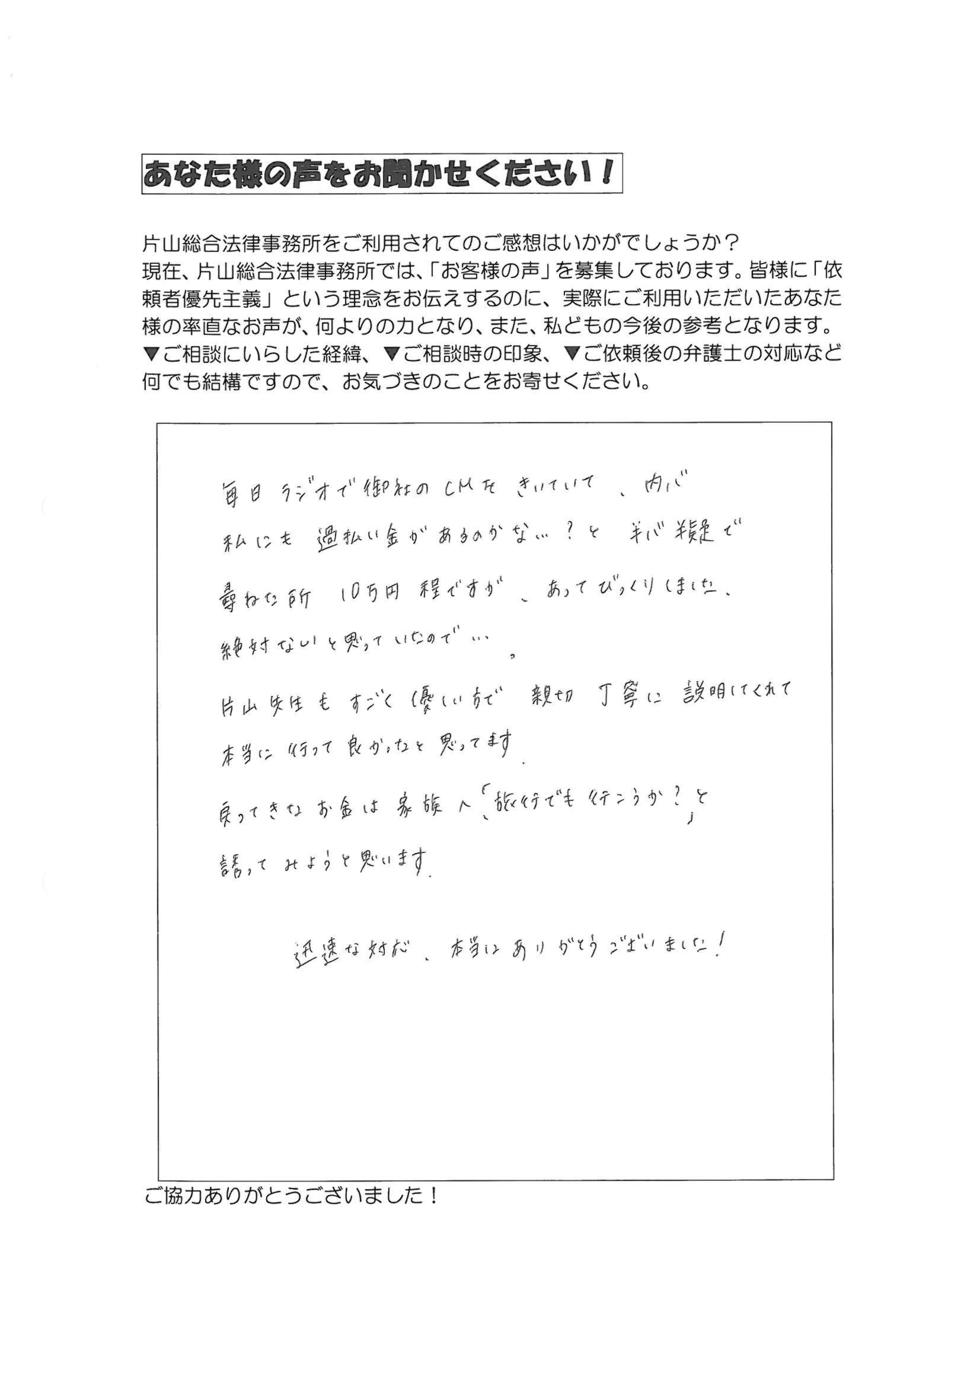 あなた様の声をお聞かせください！
片山総合法律事務所をご利用されてのご感想はいかがでしょうか？
現在、片山総合法律事務所では、「お客様の声」を募集しております。皆様に「依
頼者優先主義」という理念をお伝えするのに、実際にご利用いただいたあなた
様の率直なお声が、何よりの力となり、また、私どもの今後の参考となります。
▼ご相談にいらした経緯、▼ご相談時の印象、▼ご依頼後の弁護士の対応など
何でも結構ですので、お気づきのことをお寄せください。
毎日ラジオで御社のCMをきいていて、内心
私にも過払い金があるのかな…？と半信半疑で
尋ねた所 10万円程ですが、あってびっくりしました。
絶対ないと思っていたので…。
片山先生もすごく優しい方で親切丁寧に説明してくれて
本当に行って良かったと思ってます。
戻ってきたお金は家族へ「旅行でも行こうか？」と
誘ってみようと思います。
迅速な対応、本当にありがとうございました！
ご協力ありがとうございました！